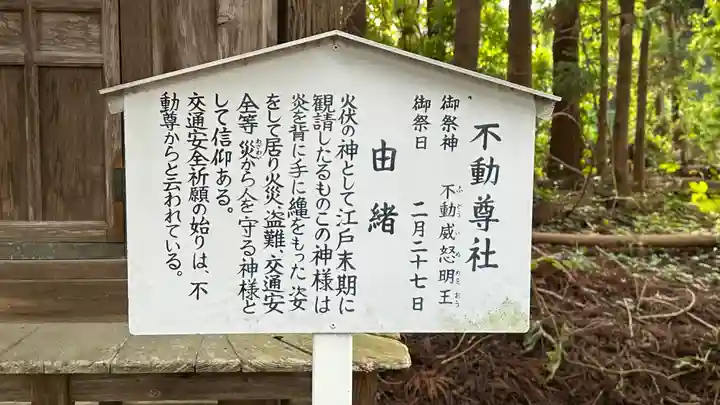 不動尊社
御祭神　不動威怒明王
ふどういぬめうおう
御祭日　二月二十七日
由緒
火伏の神として江戸末期に
観請したるものこの神様は
炎を背に手に縄をもった姿
をして居り火災、盗難、交通安
全等災から人を守る神様と
わざわい
して信仰ある。
交通安全祈願の始りは、不
動尊からと云われている。